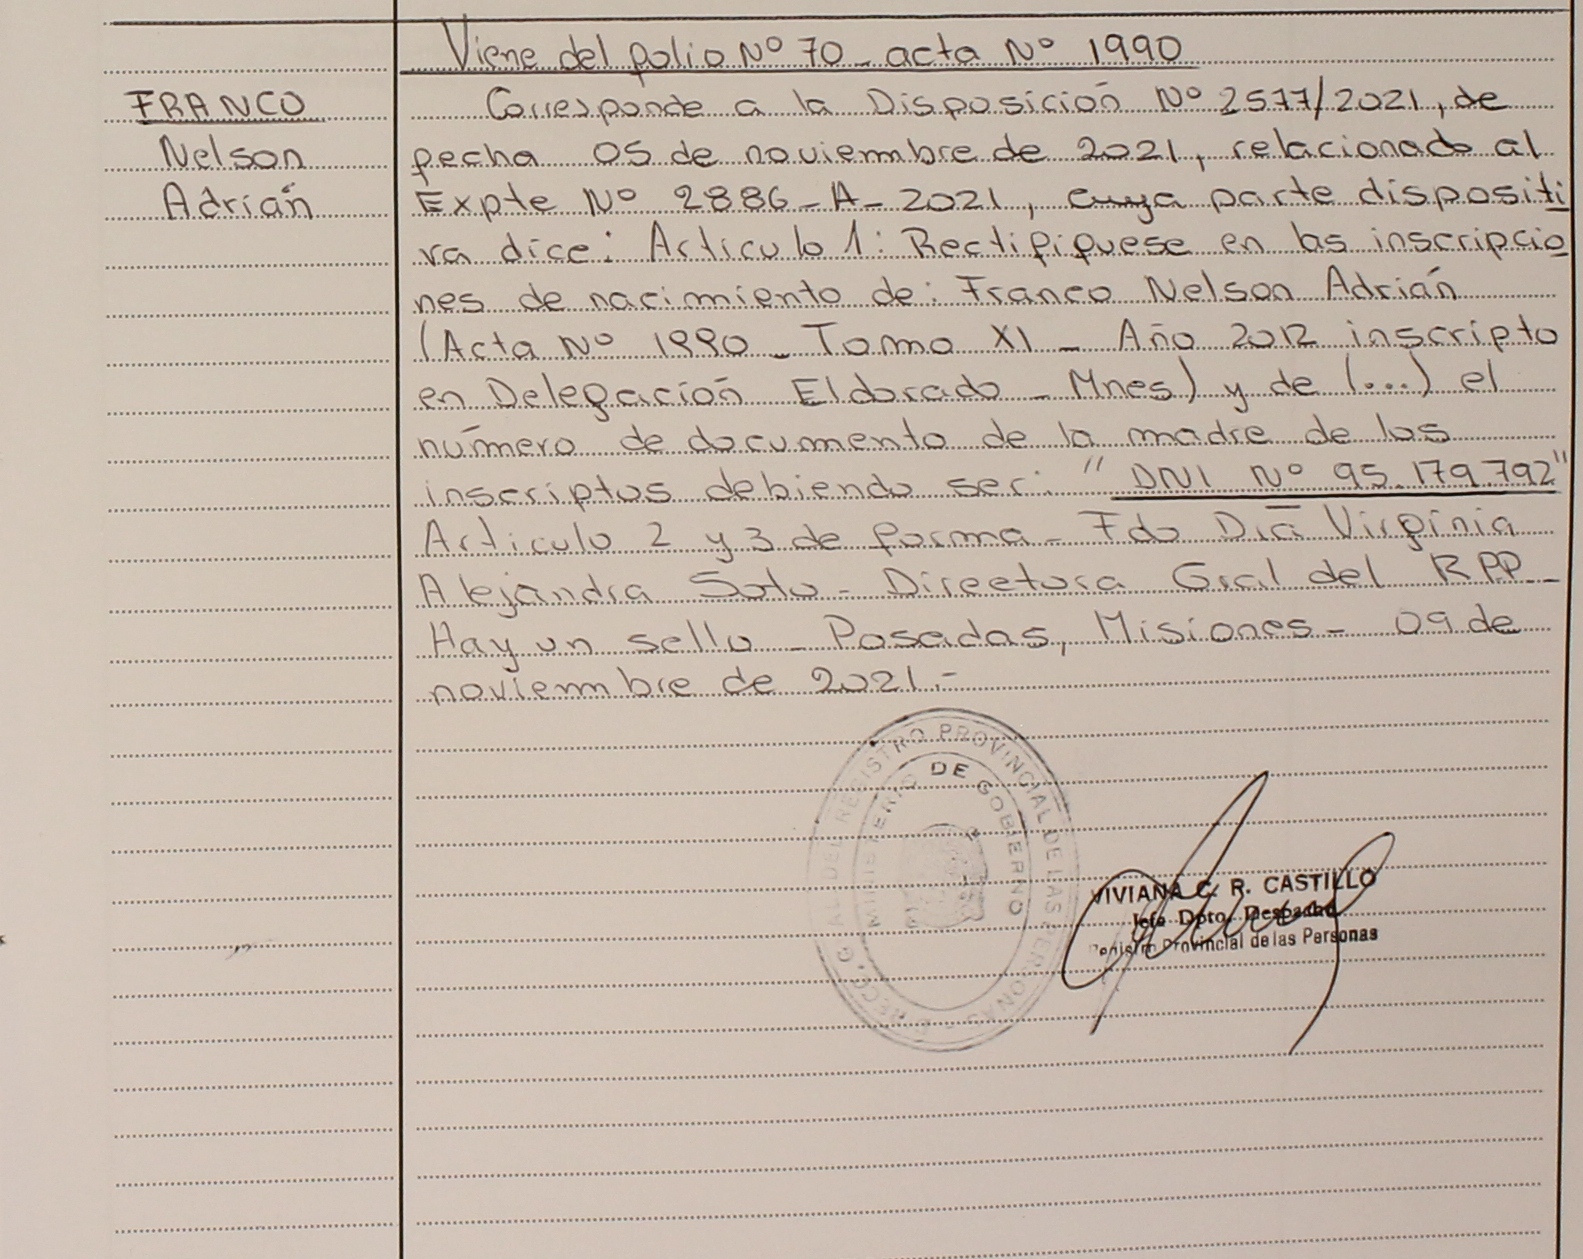 Viene del folio Nº 70 - acta Nº 1990
FRANCO
Nelson
Adrián
Corresponde a la Disposición Nº 2577/2021, de
fecha 05 de noviembre de 2021, relacionado al
Expte Nº 2886-A-2021, cuya parte dispositi
va dice: Articulo 1: Rectifiquese en las inscripcio
nes de nacimiento de: Franco Nelson Adrián
(Acta Nº 1990 - Tomo XI - Año 2012 inscripto
en Delegación Eldorado - Mnes) y de (...) el
número de documento de la madre de los
inscriptos debiendo ser: "DNI Nº 95.179.792"
Articulo 2 y 3 de forma - Fdo Dra Virginia
Alejandra Soto - Directora Gral del RPP -
Hay un sello - Posadas, Misiones - 09 de
noviembre de 2021.-
DIRECC. G AL DEL REGISTRO PROVINCIAL DE LAS PERSONAS -
MINISTERIO DE GOBIERNO
VIVIANA C. R. CASTILLO
Jefe Dpto. Despacho
Registro Provincial de las Personas